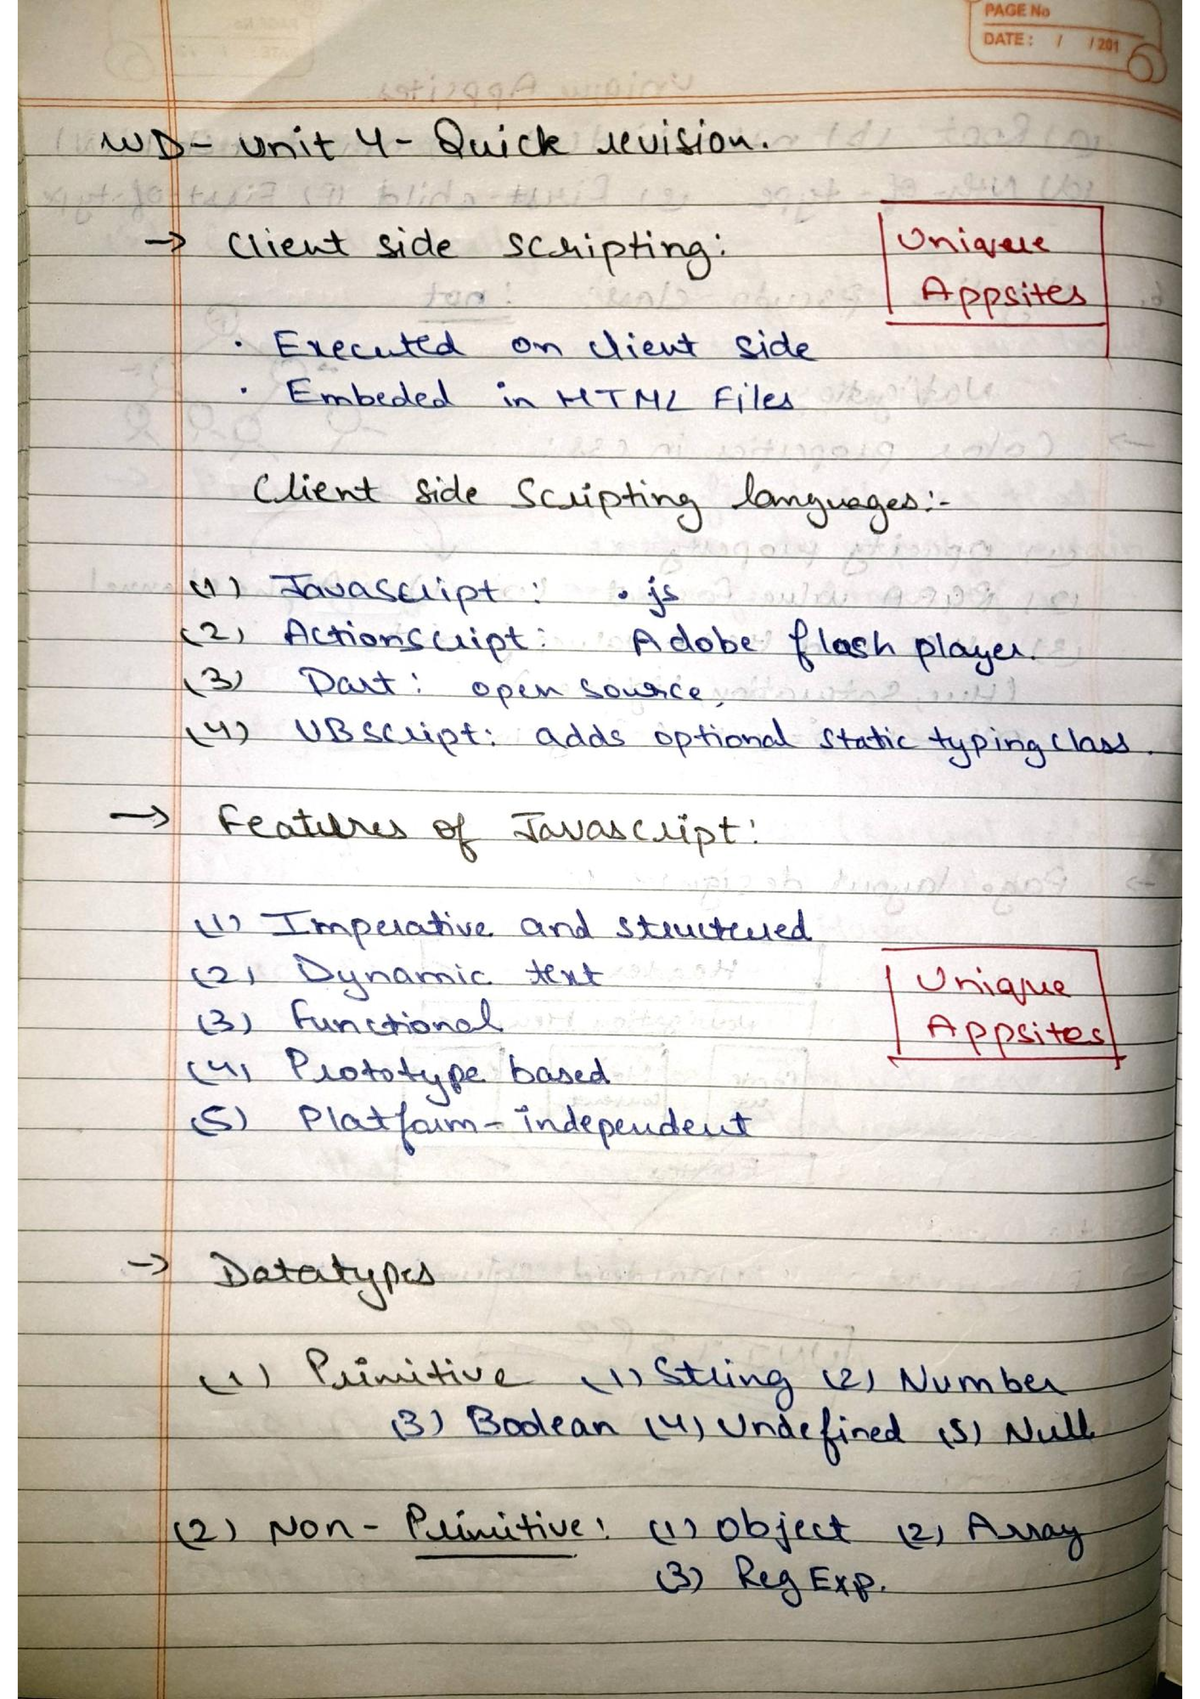 PAGE No
DATE: / /201
WD- Unit 4- Quick revision.
→ Client side scripting:
Unique
Appsites
· Executed on client side
· Embeded in HTML Files
Client side Scripting languages:-
(1) Javascript: .js
(2) Actionscript: Adobe flash player.
(3) Dart: open source,
(4) VBscript: adds optional static typing class.
→ Features of Javascript:
(1) Imperative and structured
(2) Dynamic text
(3) functional
(4) Prototype based
(5) Platform-independent
Unique
Appsites
→ Datatypes
(1) Primitive (1) String (2) Number
(3) Boolean (4) Undefined (5) Null
(2) Non-Primitive: (1) Object (2) Array
(3) RegExp.